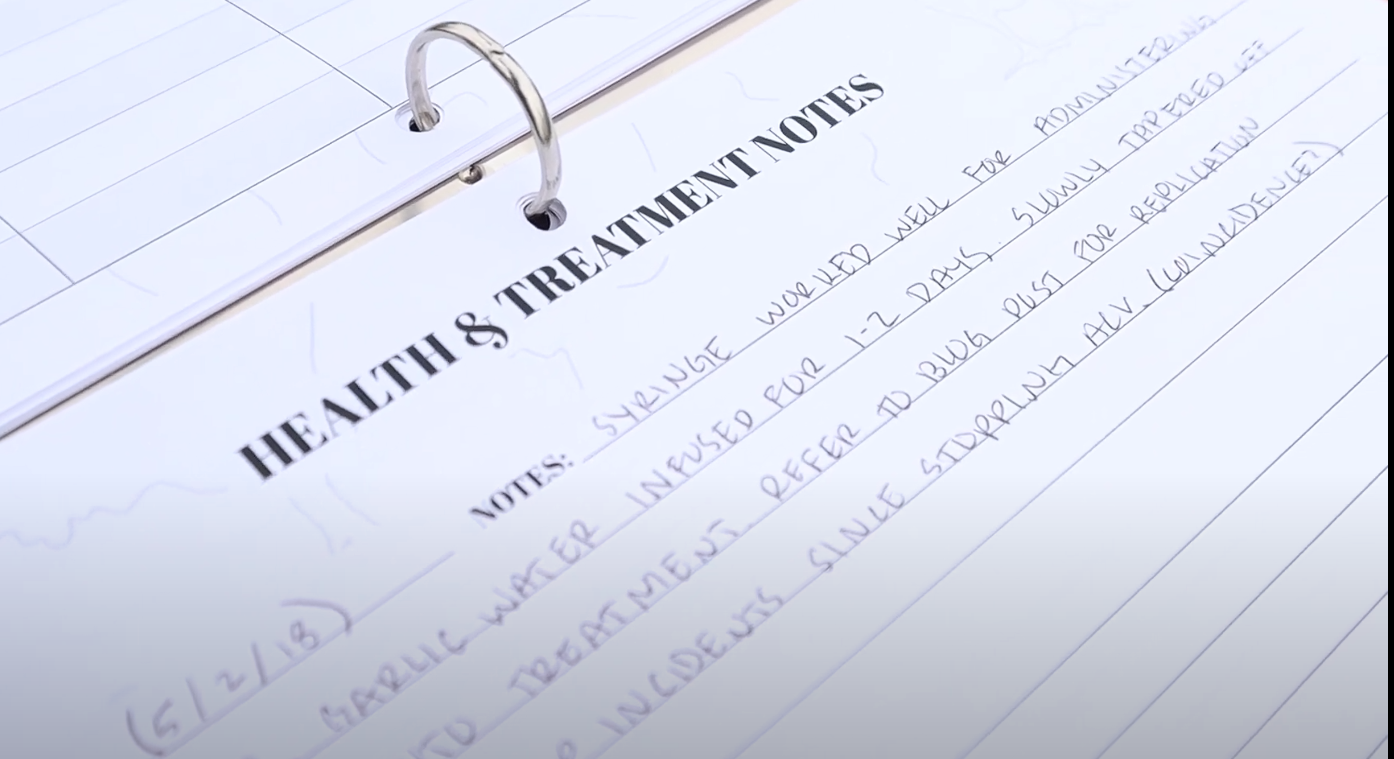 HEALTH & TREATMENT NOTES
(5/2/18) NOTES: SYRINGE WORKED WELL FOR ADMINISTERING
GARLIC WATER INFUSED FOR 1-2 DAYS. SLOWLY TAPERED OFF
TREATMENT. REFER TO BLOG POST FOR REPLICATION
INCIDENTS SINCE STOPPING ACV. (COINCIDENCE?)